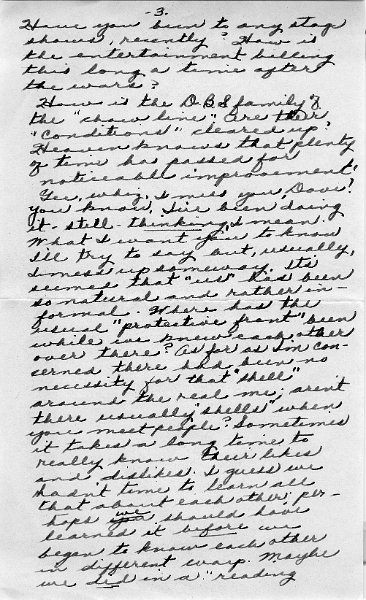 -3.
Have you been to any stage
shows, recently? How is
the entertainment billing
this long a time after
the wars?
How is the DBS family &
the "chow line" are their
"conditions" cleared up?
Heaven knows that plenty
of time has passed for
noticeable improvement!
Gee, whiz, I miss you Dave!
You know, I've been doing
it - still - thinking, I mean.
What I want you to know
I'll try to say but, usually,
I mess up someway. It's
seemed that "us" has been
so natural and rather in-
formal. Where has the
usual "protective front" been
while we knew each other
over there? As far as I'm con-
cerned there had been no
necessity for that "shell"
around the real me; aren't
there usually "shells" when
you meet people? Sometimes
it takes a long time to
really know their likes
and dislikes. I guess we
hadn't time to learn all
that about each other; per-
haps we should have
learned it before we
began to know each other
in different ways. Maybe
we did in a "reading